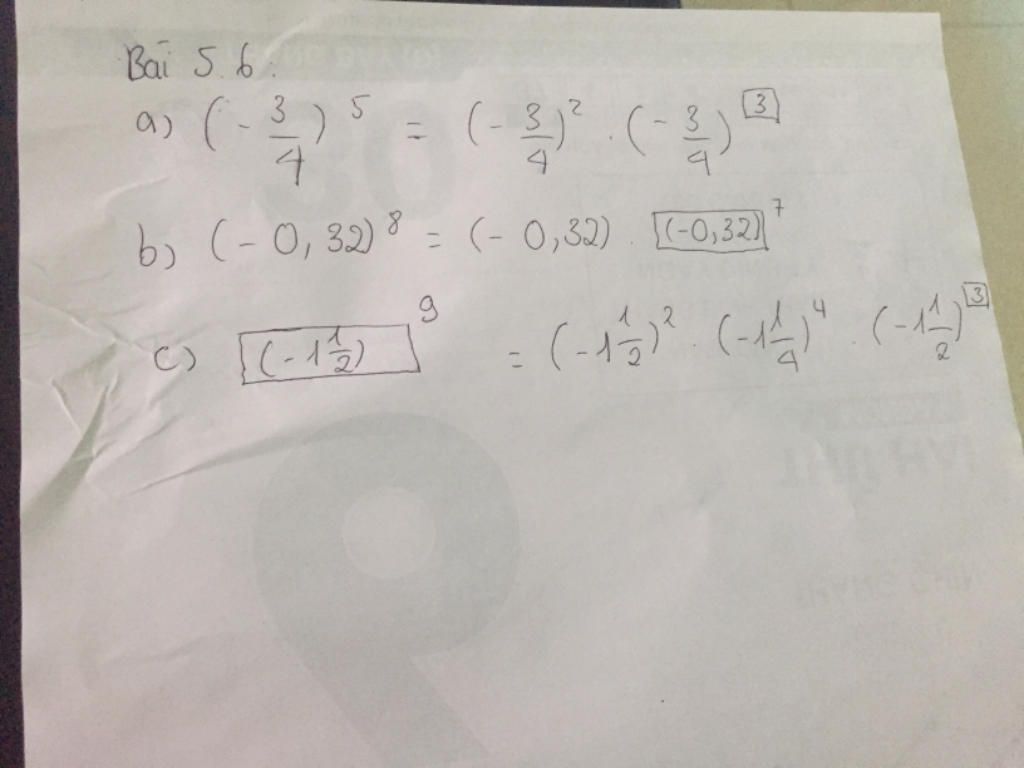 Bài 5.6:
a) (-3/4)^5 = (-3/4)^2 . (-3/4)^3
b) (-0,32)^8 = (-0,32) . (-0,32)^7
c) (-1 1/2)^9 = (-1 1/2)^2 . (-1 1/4)^4 . (-1 1/2)^3